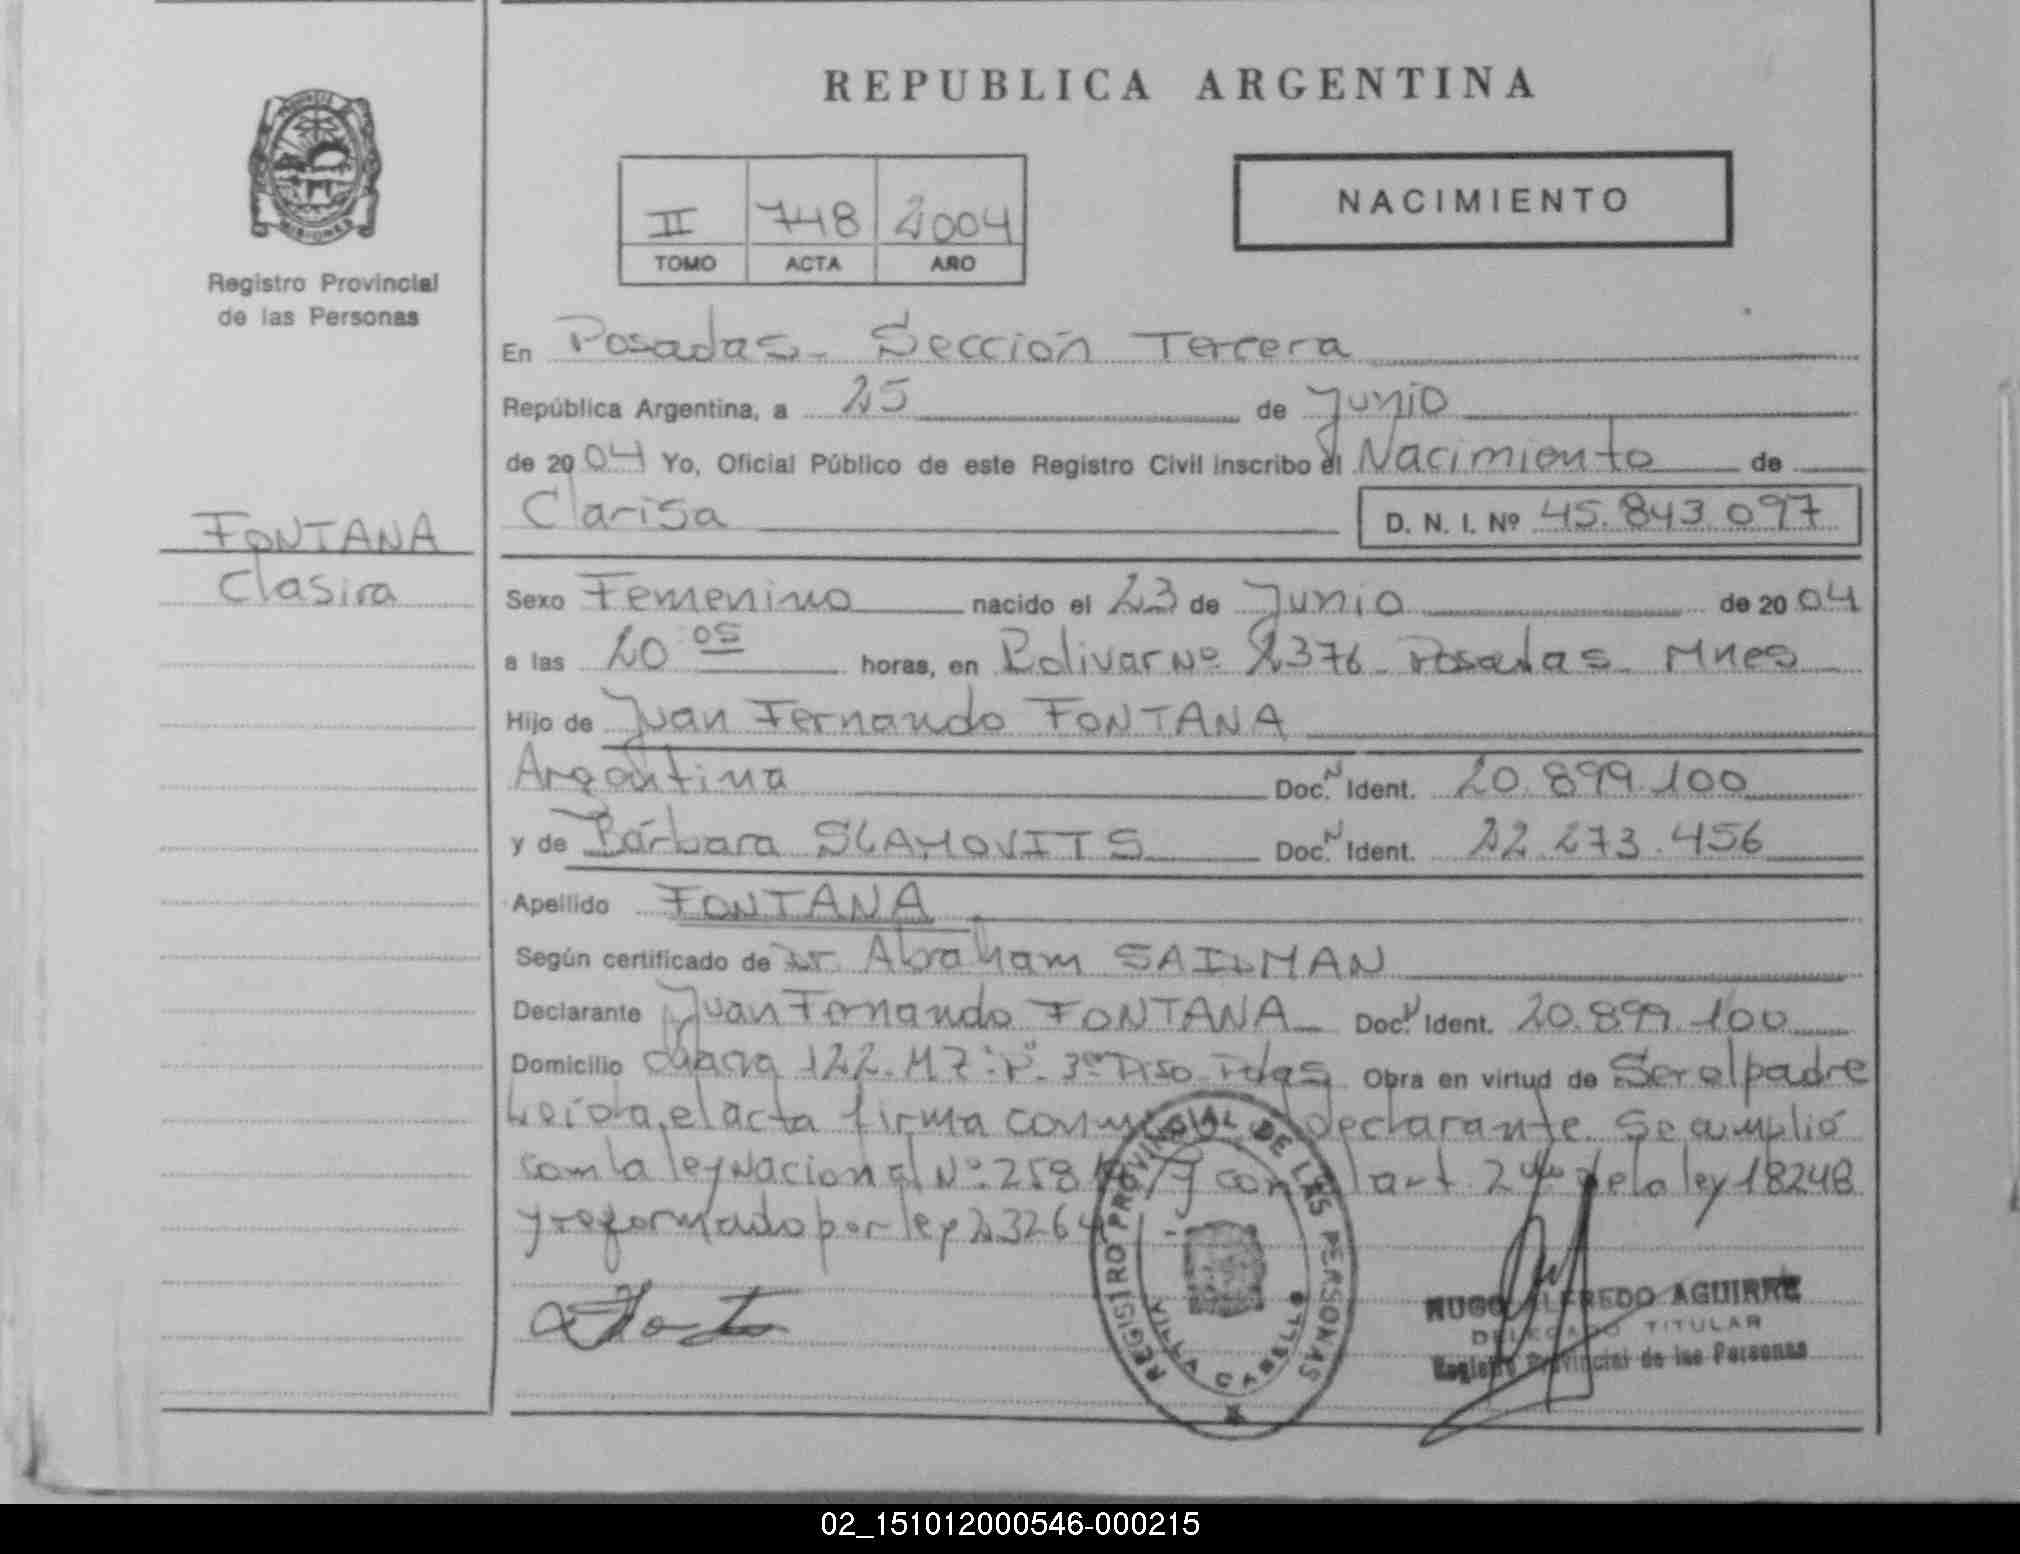 REPUBLICA ARGENTINA
NACIMIENTO
II 748 2004
TOMO ACTA AÑO
PROVINCIA MISIONES
Registro Provincial
de las Personas
FONTANA
Clasira
En Posadas - Sección Tercera
República Argentina, a 25 de Junio
de 2004 Yo, Oficial Público de este Registro Civil inscribo el Nacimiento de
Clarisa D. N. I. Nº 45.843.097
Sexo Femenino nacido el 23 de Junio de 2004
a las 20 05 horas, en Bolivar Nº 2376 - Posadas - Mnes
Hijo de Juan Fernando FONTANA
Argentina Doc. N Ident. 20.899.100
y de Bárbara Doc. N Ident. 22.273.456
Apellido FONTANA
Según certificado de Dr. Abraham
Declarante Juan Fernando FONTANA Doc. N Ident. 20.899.100
Domicilio 122. MZ "P" 3er Piso Pdas Obra en virtud de Ser el padre
Leída el acta firma declarante Se amplió
con la ley Nacional Nº 258 y con art 2 de la ley 18248
y reformado por ley 23264
REGISTRO PROVINCIAL DE LAS PERSONAS
VILLA CABELLO
HUGO ALFREDO AGUIRRE
DELEGADO TITULAR
Registro Provincial de las Personas
02_151012000546-000215